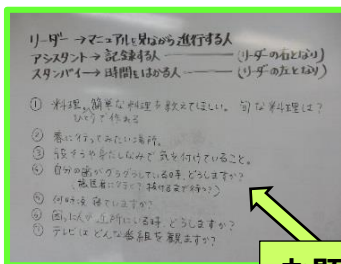 リーダー →マニュアルを見ながら進行する人
アシスタント→ 記録する人 ―――― (リーダーの右となり)
スタンバイ→ 時間をはかる人 ―――― (リーダーの左となり)
① 料理 簡単な料理を教えてほしい。 旬な料理は?
ひとりで作れる
② 春に行ってみたい場所。
③ 服そうや身だしなみで 気を付けていること。
④ 自分の歯がグラグラしている時、どうしますか?
⑤ 何時頃 寝ていますか?
⑥ 困った人が近所にいる時、どうしますか?
⑦ テレビは どんな番組を観ますか?